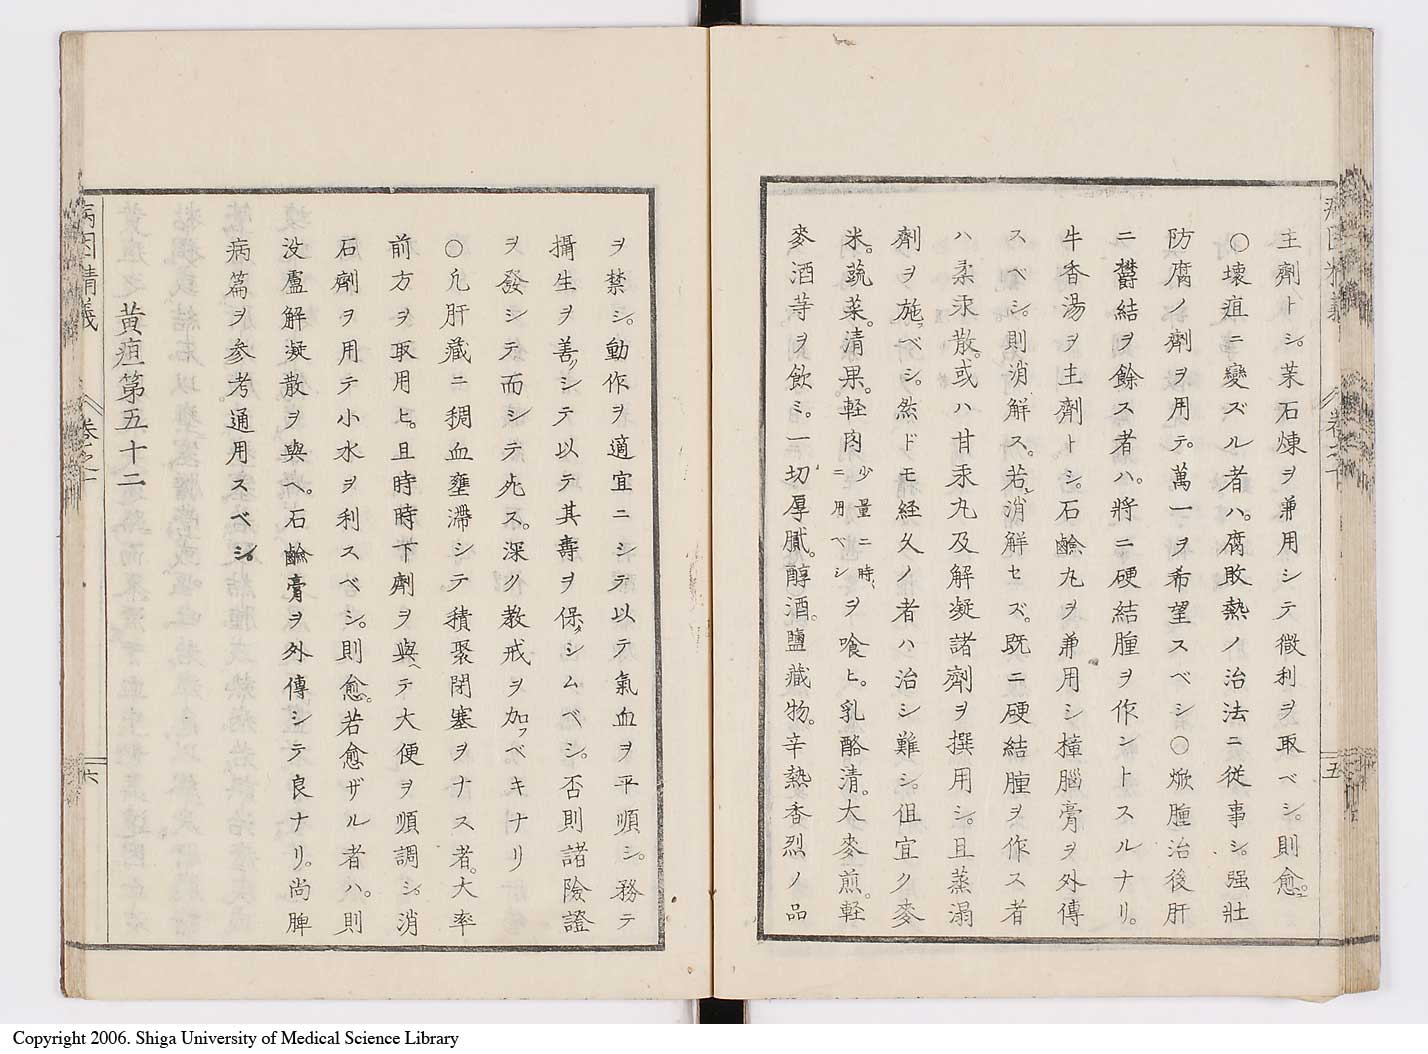 主劑トシ。茱石煉ヲ兼用シテ微利ヲ取ベシ。則愈。
〇壞疽ニ變ズル者ハ。腐敗熱ノ治法ニ從事シ。强壯
防腐ノ劑ヲ用テ。萬一ヲ希望スベシ〇焮腫治後肝
ニ欝結ヲ餘ス者ハ。將ニ硬結腫ヲ作ントスルナリ。
牛香湯ヲ主劑トシ。石鹼丸ヲ兼用シ樟腦膏ヲ外傳
スベシ。則消解ス。若シ消解セズ。既ニ硬結腫ヲ作ス者
ハ柔汞散。或ハ甘汞丸及解凝諸劑ヲ撰用シ。且蒸溻
劑ヲ施ッベシ。然ドモ経久ノ者ハ治シ難シ。但宜ク麥
米。蔬菜。清果。軽肉少量ニ時ニ用ベシヲ喰ヒ。乳酪清。大麥煎。軽
麥酒䓁ヲ飲ミ。一切厚膩。醇酒。鹽藏物。辛熱香烈ノ品
病因精義 卷之十 五
ヲ禁シ。動作ヲ適宜ニシテ以テ氣血ヲ平順シ。務テ
攝生ヲ善クシテ以テ其壽ヲ保タシムベシ。否則諸險證
ヲ發シテ而シテ死ス。深ク教戒ヲ加フベキナリ
〇凢肝藏ニ稠血壅滯シテ積聚閉塞ヲナス者。大率
前方ヲ取用ヒ。且時時下劑ヲ與ヘテ大便ヲ順調シ。消
石劑ヲ用テ小水ヲ利スベシ。則愈。若愈ザル者ハ。則
没盧解凝散ヲ與ヘ。石鹼膏ヲ外傳シテ良ナリ。尚脾
病篇ヲ参考。通用スベシ。
黄疸第五十二
病因精義 卷之十 六
Copyright 2006. Shiga University of Medical Science Library